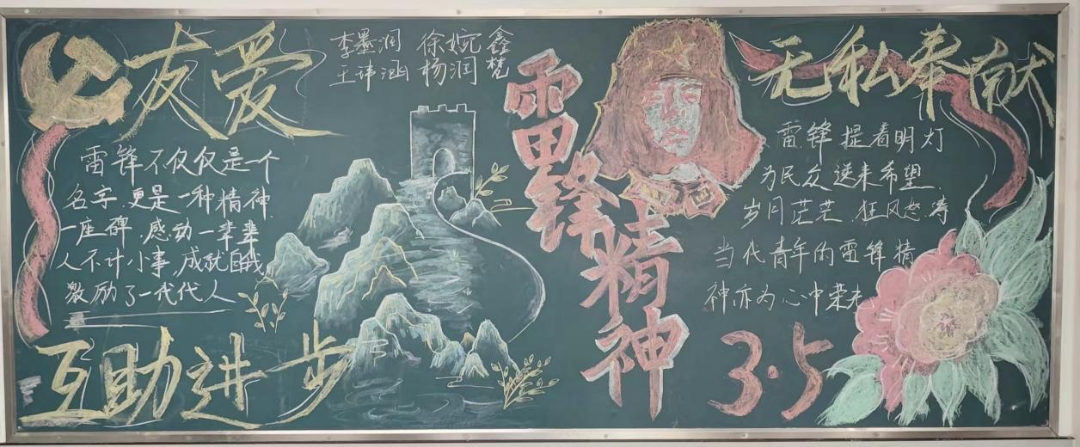 友爱
李墨润 徐婉鑫
王玮涵 杨润梵
雷锋不仅仅是一个
名字,更是一种精神
一座碑,感动一辈辈
人不计小事,成就自我,
激励了一代代人
互助进步
雷锋精神
无私奉献
雷锋提着明灯
为民众送来希望
岁月茫茫,狂风怒涛
当代青年的雷锋精
神亦为心中荣光
3·5